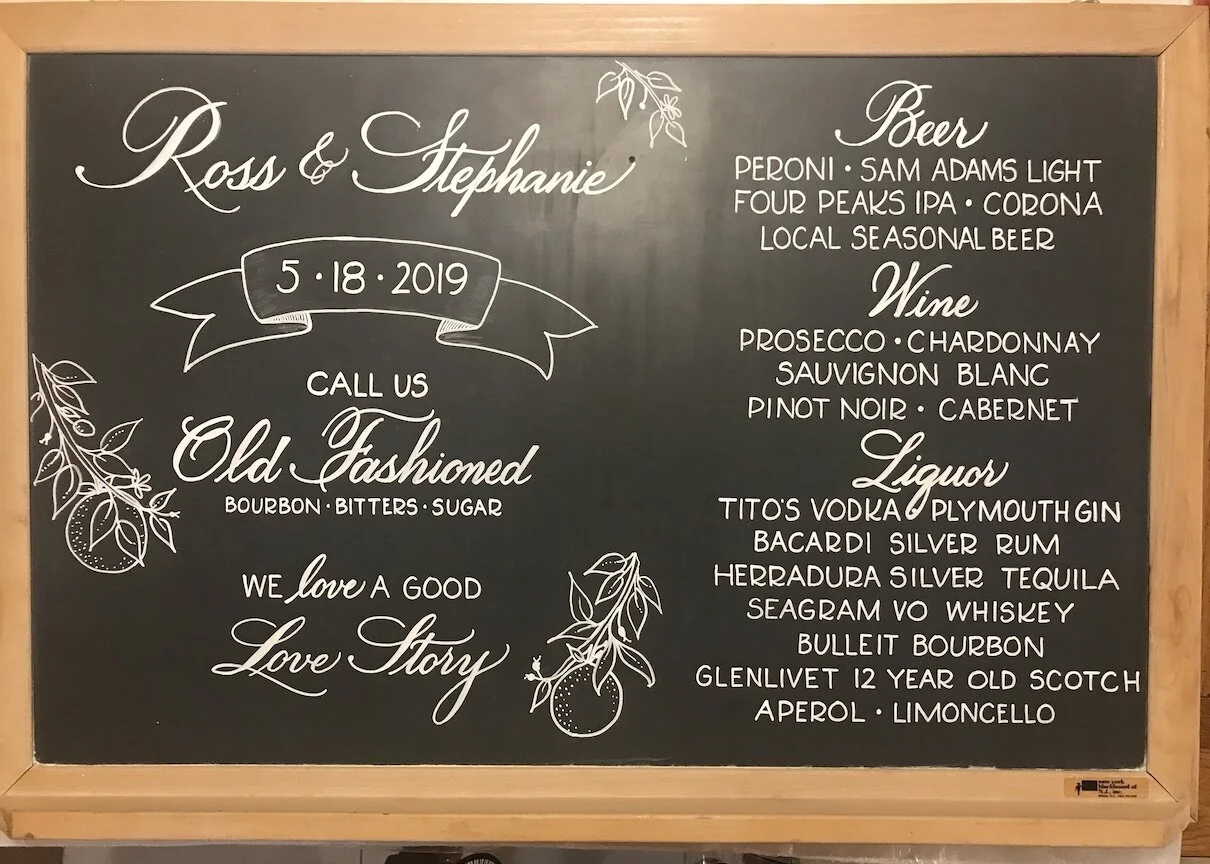 Ross & Stephanie
5 · 18 · 2019
CALL US
Old Fashioned
BOURBON · BITTERS · SUGAR
WE love A GOOD
Love Story
Beer
PERONI · SAM ADAMS LIGHT
FOUR PEAKS IPA · CORONA
LOCAL SEASONAL BEER
Wine
PROSECCO · CHARDONNAY
SAUVIGNON BLANC
PINOT NOIR · CABERNET
Liquor
TITO'S VODKA PLYMOUTH GIN
BACARDI SILVER RUM
HERRADURA SILVER TEQUILA
SEAGRAM VO WHISKEY
BULLEIT BOURBON
GLENLIVET 12 YEAR OLD SCOTCH
APEROL · LIMONCELLO
new york
blackboard of
N.J., inc.